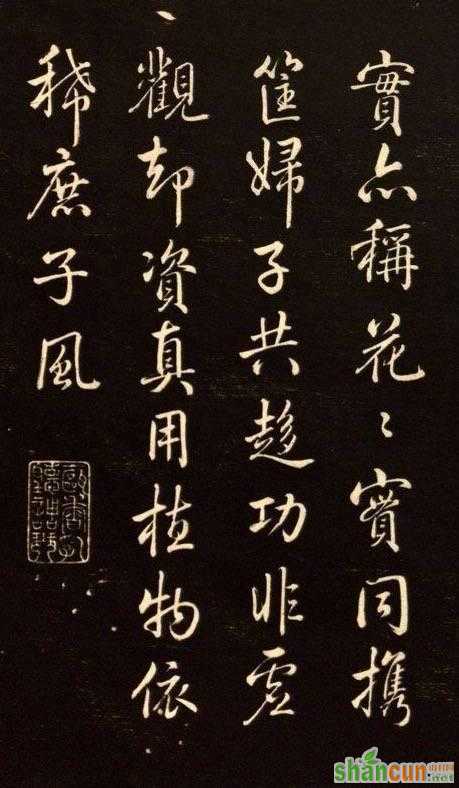 實亦稱花〻實同携
筐婦子共趍功非虛
觀却資真用植物依
稀庶子風
shancun